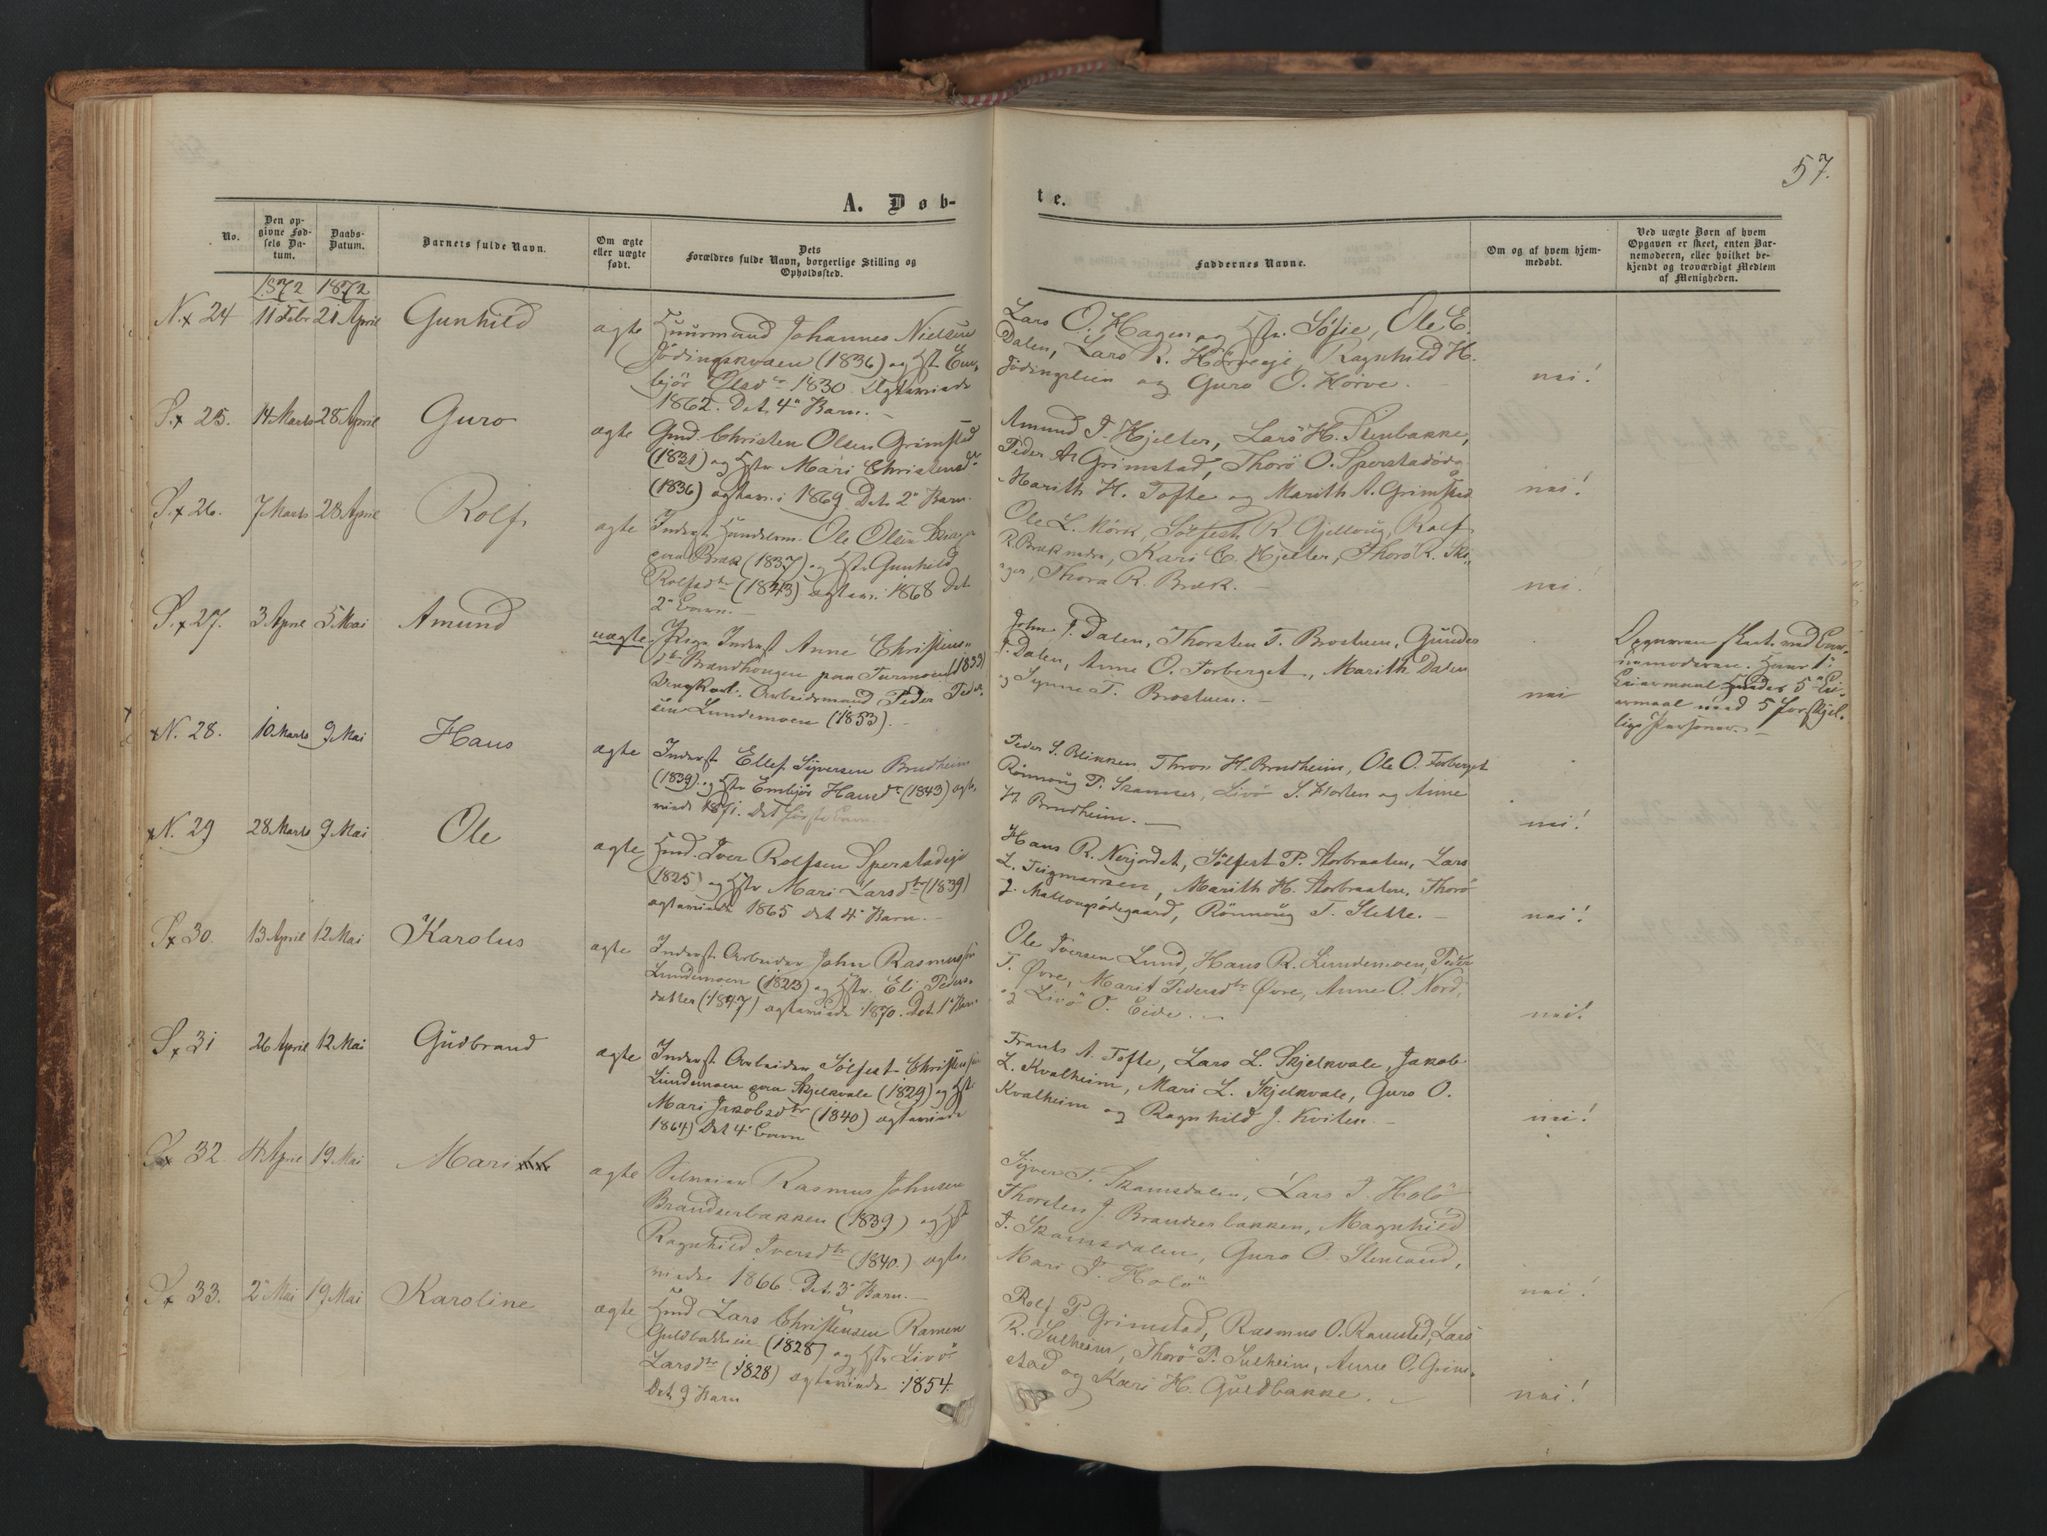 57.
A. Døb-
te.
No.
Den op-
givne Fød-
sels Da-
tum.
Daabs-
Datum.
Barnets fulde Navn.
Om ægte
eller uægte
født.
Dets
Forældres fulde Navn, borgerlige Stilling og
Opholdssted.
Faddernes Navne.
Om og af hvem hjem-
medøbt.
Ved uægte Børn af hvem
Opgaven er skeet, enten Bar-
nemoderen, eller hvilket be-
kjendt og troværdigt Medlem
af Menigheden.
1872 1872
N. 24 11 Febr 21 April Gunhild ægte
Huusmand Johannes Nielsen
(1836) og Hstr Em-
björ Olsdtr 1830 Ægteviede
1862. Det 4de Barn. –
Lars O. Hagen og Hstr. Söfie, Ole E.
Dalen, Lars R. Ragnhild H.
og Guro O. Hörve.
nei!
S. 25. 14 Marts 28 April Guro ægte
Gmd. Christen Olsen Grimstad
(1831) og Hstr Mari Christensdr
(1836) ægtev. i 1869 Det 2de Barn
Amund J. Hjelter, Lars H. Stenbakke,
Peder A. Grimstad, Thorö O.
Marith H. Tofte og Marith A. Grimstad
nei!
S. 26. 7 Marts 28 April Rolf ægte
Inderst Ole Olsen
Bræk (1837) og Hstr Gunhild
Rolfsdtr (1843) ægtev. 1868 Det
2det Barn. –
Ole L. Mörk, Sölfest R. Gjelloug, Rolf
R. Bræk nedre, Kari C. Hjelter, Thorö R.
Thora R. Bræk. –
nei!
S. 27. 3 April 5 Mai Amund uægte
Pige, Inderst Anne Christens-
dtr Brandhougen paa Turmoen (1833)
Ungkarl. Arbeidsmand Peder Peder-
sen Lundemoen (1853). –
John J. Dalen, Thorsten T. Brostuen, Gunder
J. Dalen, Anne O. Forberget, Marith Dalen
og Synne T. Brostuen. –
nei
Opgaven skeet ved Bar-
nemoderen. Hans 1ste
Leiermaal Hendes 5te Lei-
ermaal med 5 forskjel-
lige Personer. –
N. 28. 10 Marts 9 Mai Hans ægte
Inderst Ellef Syversen Brudheim
(1839) og Hstr Embjör Hansdtr (1843) ægte-
viede 1871. Det första Barn
Peder S. Blikken, Thron H. Brudheim, Ole O. Forberget
Rönnoug P. Livö S. Horten og Anne
H. Brudheim. –
nei!
N. 29 28 Marts 9 Mai Ole ægte
Hmd. Iver Rolfsen
(1825) og Hstr Mari Larsdtr (1839)
ægteviede 1865 Det 4de Barn. –
Hans R. Nerjordet, Sölfest P. Storbraaten, Lars
L. Marith H. Storbraaten, Thorö
J. Rönnoug T. Slette. –
nei!
S. 30. 13 April 12 Mai Karolus ægte
Inderst Arbeider John Rasmussen
Lundemoen (1823) og Hstr. Eli Peders-
datter (1847) ægteviede 1870. Det 1ste Barn
Ole Iversen Lund, Hans R. Lundemoen, Peder
T. Övre, Marit Pedersdtr Övre, Anne O. Nord,
og Livö O. Eide. –
nei!
S. 31 26 April 12 Mai Gudbrand ægte
Inderst Arbeider Sölfest Christensen
Lundemoen paa Skjelkvale (1829) og Hst.
Mari Jakobsdtr (1840) ægteviede
1864) Det 4de Barn
Frants A. Tofte, Lars L. Skjelkvale, Jakob
L. Kvalheim, Mari L. Skjelkvale, Guro O.
Kvalheim og Ragnhild J. Kviten. –
nei!
S. 32. 4 April 19 Mai Mari ægte
Selveier Rasmus Johnsen
Brandserbakken (1839) og Hst
Ragnhild Iversdtr (1840.) ægte-
viede 1866. Det 3de Barn. –
Syver T. Skamsdalen, Lars J. Holö
Thorsten J. Brandserbakken, Magnhild
J. Skamsdalen, Guro O. Stenland,
Mari J. Holö
nei!
S. 33. 2 Mai 19 Mai Karoline ægte
Hmd Lars Christensen Ramen
Guldbakken (1828) og Hstr Livö
Larsdtr (1828) ægteviede 1854.
Det 9 Barn
Rolf P. Grimstad, Rasmus O. Ramstad, Lars
R. Sulheim, Thorö P. Sulheim, Anne O. Grim-
stad og Kari H. Guldbakke.
nei!